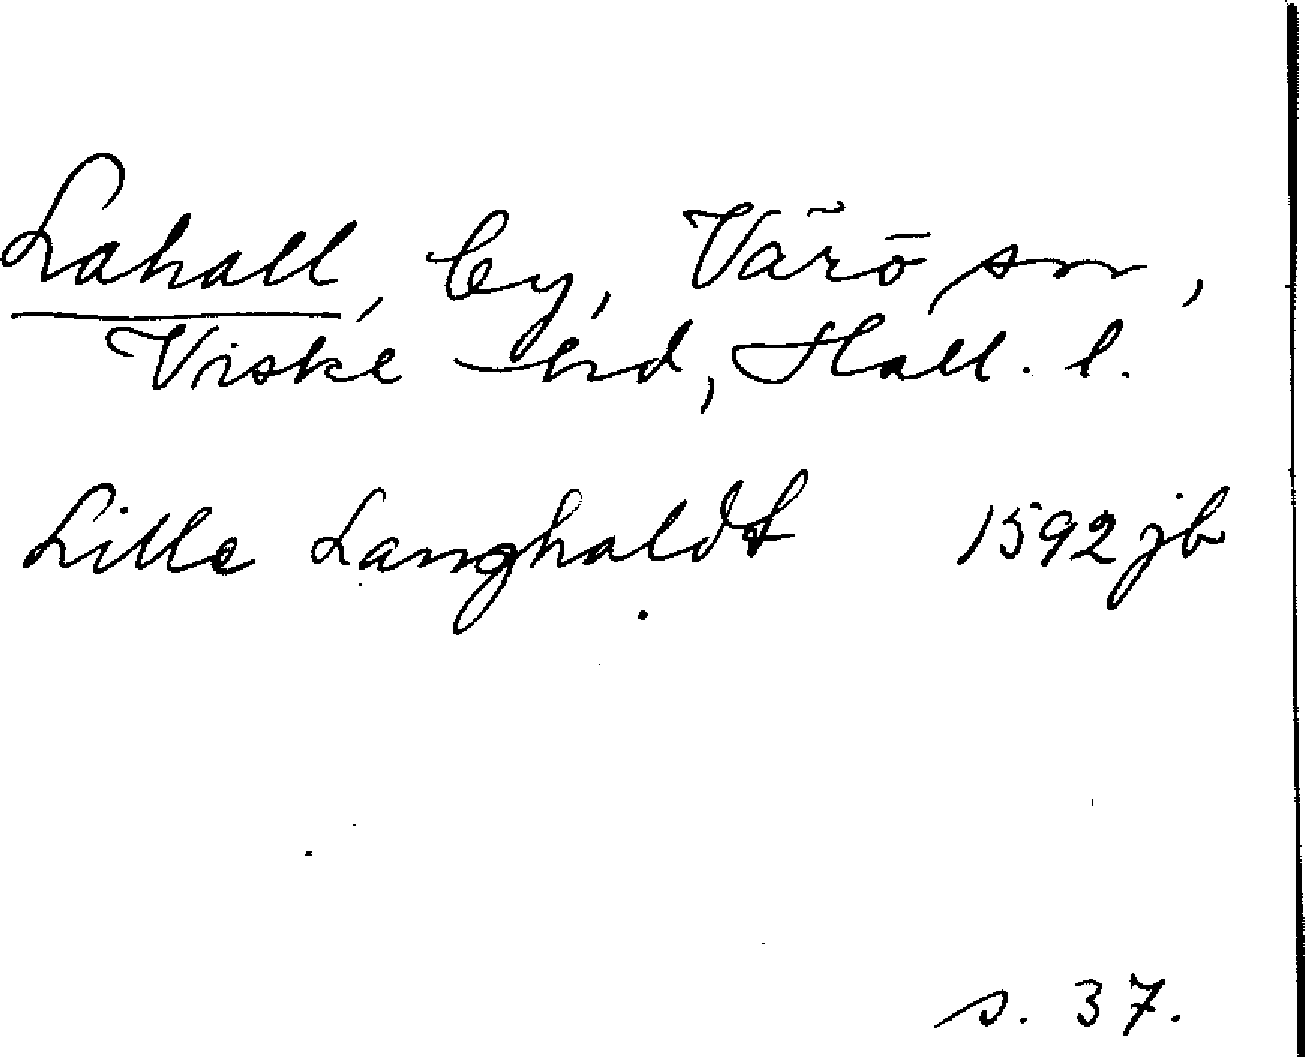 Lahall, by, Värö sn,
Viske hd, Hall. l.
Lille Langholdt 1592 jb
s. 37.